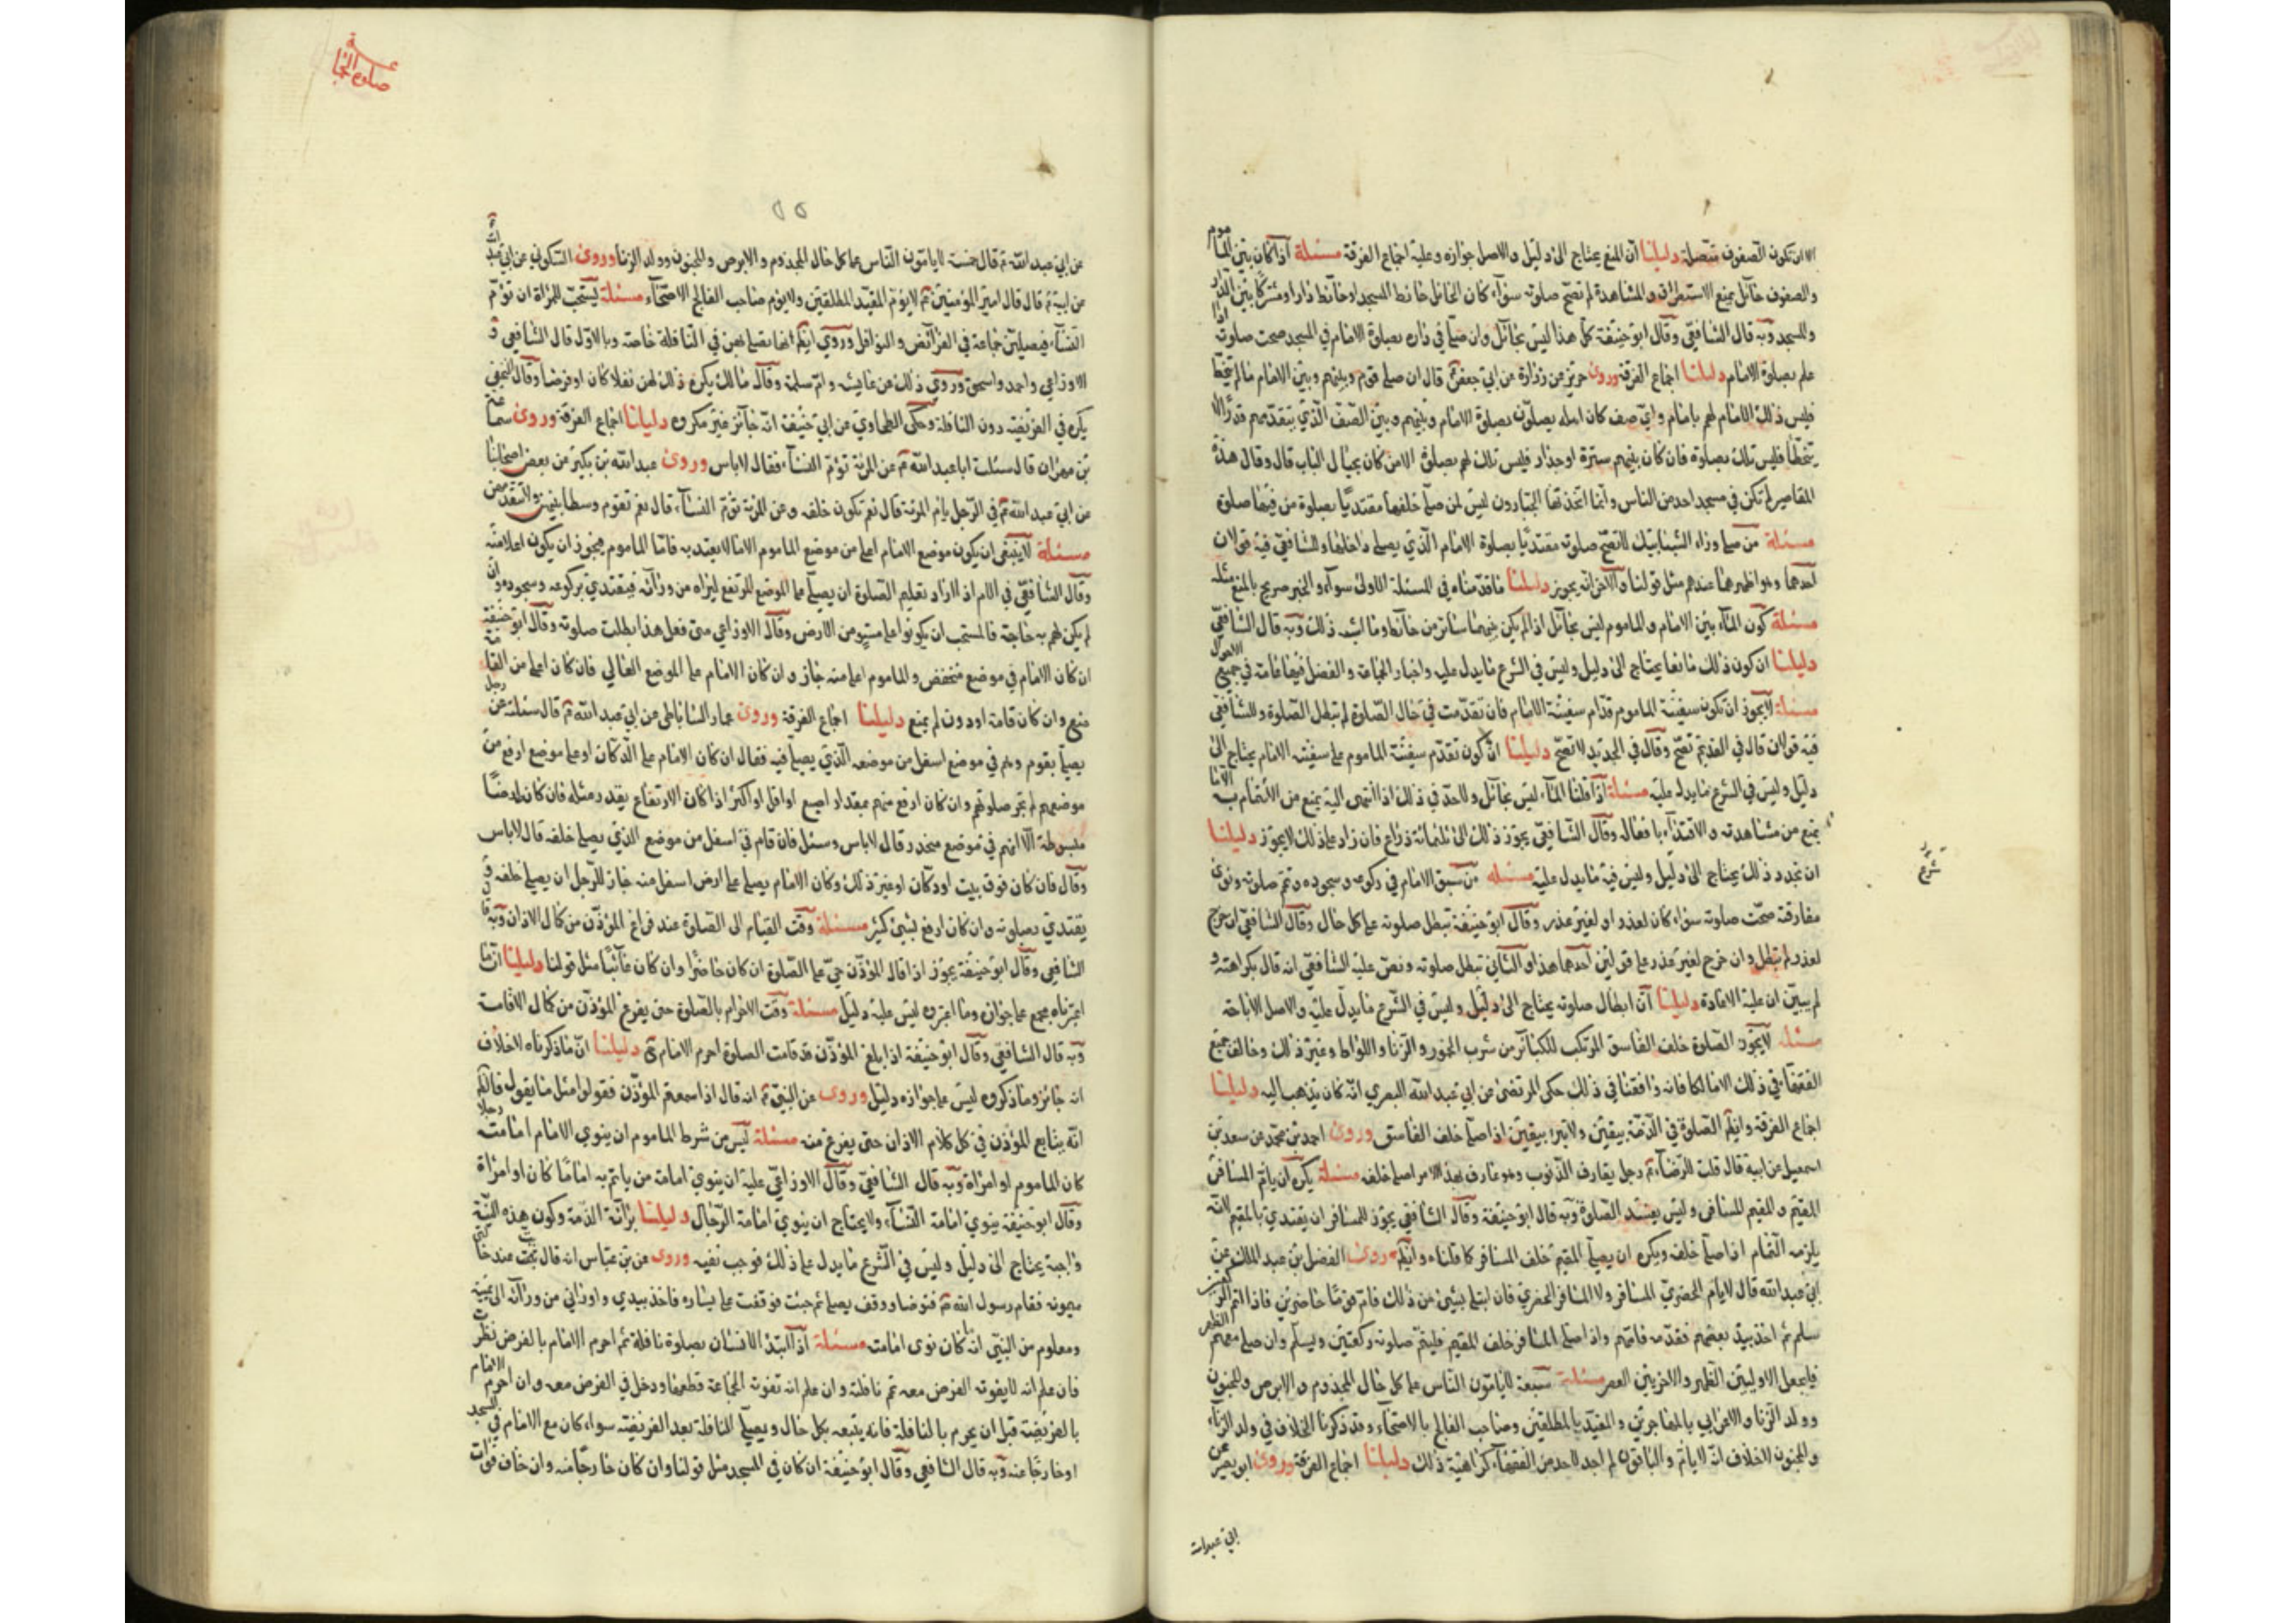 الا ان تكون الصفوف متصلة دليلنا ان المنع يحتاج الى دليل والاصل جوازه وعليه اجماع الفرقة مسئلة اذا كان بين الماموم
والصفوف حائل يمنع الاستطراق والمشاهدة لم تصح صلوته سواء كان الحائل حائط المسجد او حائط دار او مشتركا بين الدار
والمسجد وبه قال الشافعي وقال ابو حنيفة كل هذا ليس بحائل وان صلى في داره بصلوة الامام في المسجد صحت صلوته اذا
علم بصلوة الامام دليلنا اجماع الفرقة وروى حريز عن زرارة عن ابي جعفر ع قال ان صلى قوم وبينهم وبين الامام ما لا يتخطا
فليس ذلك الامام لهم بامام واي صف كان اهله يصلون بصلوة الامام وبينهم وبين الصف الذي يتقدمهم قدر ما لا
يتخطا فليس تلك بصلوة فان كان بينهم سترة او جدار فليس تلك لهم بصلوة الا من كان بحيال الباب قال وقال هذه
المقاصير لم تكن في مسجد احد من الناس وانما اتخذتها الجبارون ليس لمن صلى خلفها مقتديا بصلوة من فيها صلوة
مسئلة من صلى وراء الشبابيك لا تصح صلوته مقتديا بصلوة الامام الذي يصلي داخلها وللشافعي فيه قولان
احدهما وهو اظهرهما عندهم مثل قولنا والاخر انه يجوز دليلنا ما قدمناه في المسئلة الاولى سواء والخبر صريح بالمنع مثله
مسئلة كون الماء بين الامام والماموم ليس بحائل اذا لم يكن بينهما ساتر من حائط وما اشبه ذلك وبه قال الشافعي
دليلنا ان كون ذلك مانعا يحتاج الى دليل وليس في الشرع ما يدل عليه واخبار الجماعة والفضل فيها عامة في جميع الاحوال
مسئلة لا يجوز ان تكون سفينة الماموم قدام سفينة الامام فان تقدمت في حال الصلوة لم تبطل الصلوة وللشافعي
فيه قولان قال في القديم تصح وقال في الجديد لا تصح دليلنا ان كون تقدم سفينة الماموم على سفينة الامام يحتاج الى
دليل وليس في الشرع ما يدل عليه مسئلة اذا قلنا الماء ليس بحائل ولا حد في ذلك اذا انتهى اليه يمنع من الائتمام به الا ما
يمنع من مشاهدته والاقتداء بافعاله وقال الشافعي يجوز ذلك الى ثلثمائة ذراع فان زاد على ذلك لا يجوز دليلنا
ان تحديد ذلك يحتاج الى دليل وليس فيه ما يدل عليه مسئلة من سبق الامام في ركوعه وسجوده وتم صلوته ونوى
مفارقته صحت صلوته سواء كان لعذر او لغير عذر وقال ابو حنيفة تبطل صلوته على كل حال وقال الشافعي ان خرج
لعذر لم تبطل وان خرج لغير عذر على قولين احدهما هذا والثاني تبطل صلوته ونص عليه الشافعي انه قال بكراهته و
لم يبين ان عليه الاعادة دليلنا ان ابطال صلوته يحتاج الى دليل وليس في الشرع ما يدل عليه والاصل الاباحة
مسئلة لا يجوز الصلوة خلف الفاسق المرتكب للكبائر من شرب الخمور والزنا واللواط وغير ذلك وخالف جميع
الفقهاء في ذلك الا مالكا فانه وافقنا في ذلك حكى المرتضى عن ابي عبد الله البصري انه كان يذهب اليه دليلنا
اجماع الفرقة وايضا الصلوة في الذمة بيقين ولا تبرا بيقين اذا صلى خلف الفاسق وروى احمد بن محمد عن سعد بن
اسمعيل عن ابيه قال قلت للرضا ع رجل يقارف الذنوب وهو عارف بهذا الامر اصلي خلفه مسئلة يكره ان ياتم المسافر
المقيم والمقيم للمسافر وليس بمفسد الصلوة وبه قال ابو حنيفة وقال الشافعي يجوز للمسافر ان يقتدي بالمقيم لانه
يلزمه التمام اذا صلى خلفه ويكره ان يصلي المقيم خلف المسافر كما قلناه وايضا روى الفضل بن عبد الملك عن
ابي عبد الله قال لا يام الحضري المسافر ولا المسافر الحضري فان ابتلي بشيء من ذلك فام قوما حاضرين فاذا اتم الركعتين
سلم ثم اخذ بيد بعضهم فقدمه فامهم واذا صلى المسافر خلف المقيم فليتم صلوته ركعتين ويسلم وان صلى معهم الظهر
فليجعل الاوليين الظهر والاخريين العصر مسئلة سبعة لا يامون الناس على كل حال المجذوم والابرص والمجنون
وولد الزنا والاعرابي بالمهاجرين والمقيد بالمطلقين وصاحب الفالج بالاصحاء وقد ذكرنا الخلاف في ولد الزنا
والمجنون لا خلاف انه لا يام والباقون لم اجد لاحد من الفقهاء كراهية ذلك دليلنا اجماع الفرقة وروى ابو بصير عن
ابي عبد الله
صلوة الجماعة
عن ابي عبد الله ع قال خمسة لا يامون الناس على كل حال المجذوم والابرص والمجنون وولد الزنا وروى السكوني عن ابي عبد الله
عن ابيه ع قال قال امير المؤمنين ع لا يؤم المقيد المطلقين ولا يؤم صاحب الفالج الاصحاء مسئلة يستحب للمراة ان تؤم
النساء فيصلين جماعة في الفرائض والنوافل وروي ايضا انها تصلي بهن في النافلة خاصة وبالاول قال الشافعي و
الاوزاعي واحمد واسحق وروي ذلك عن عايشة وام سلمة وقال مالك يكره ذلك لهن نفلا كان او فرضا وقال النخعي
يكره في الفريضة دون النافلة وحكى الطحاوي عن ابي حنيفة انه جائز غير مكروه دليلنا اجماع الفرقة وروى سماعة
بن مهران قال سئلت ابا عبد الله ع عن المرئة تؤم النساء فقال لا باس وروى عبد الله بن بكير عن بعض اصحابنا
عن ابي عبد الله ع في الرجل يام المرئة قال نعم تكون خلفه وعن المرئة تؤم النساء قال نعم تقوم وسطا بينهن ولا تتقدمهن
مسئلة لا ينبغي ان يكون موضع الامام اعلى من موضع الماموم الا ما لا يعتد به فاما الماموم فيجوز ان يكون اعلا منه
وقال الشافعي في الام اذا اراد تعليم الصلوة ان يصلي على الموضع المرتفع ليراه من ورائه فيقتدي بركوعه وسجوده وان
لم يكن لهم به حاجة فالمستحب ان يكونوا على مستو من الارض وقال الاوزاعي متى فعل هذا بطلت صلوته وقال ابو حنيفة
ان كان الامام في موضع منخفض والماموم اعلى منه جاز وان كان الامام على الموضع العالي فان كان اعلى من القامة
منع وان كان قامة او دون لم يمنع دليلنا اجماع الفرقة وروى عمار الساباطي عن ابي عبد الله ع قال سئلته عن رجل
يصلي بقوم وهم في موضع اسفل من موضعه الذي يصلي فيه فقال ان كان الامام على الدكان او على موضع ارفع من
موضعهم لم تجز صلوتهم وان كان ارفع منهم بمقدار اصبع او اقل او اكثر اذا كان الارتفاع بقدر مثله فان كان ارضا
مبسوطة الا انهم في موضع منحدر قال لا باس وسئل فان قام في اسفل من موضع الذي يصلي خلفه قال لا باس
وقال فان كان فوق بيت او دكان او غير ذلك وكان الامام يصلي على ارض اسفل منه جاز للرجل ان يصلي خلفه و
يقتدي بصلوته وان كان ارفع بشيء كثير مسئلة وقت القيام الى الصلوة عند فراغ المؤذن من كمال الاذان وبه قال
الشافعي وقال ابو حنيفة يجوز اذا قال المؤذن حي على الصلوة ان كان حاضرا وان كان غائبا مثل قولنا دليلنا ان ما
اعتبرناه مجمع على جوازه وما اعتبره ليس عليه دليل مسئلة وقت الاحرام بالصلوة حين يفرغ المؤذن من كمال الاقامة
وبه قال الشافعي وقال ابو حنيفة اذا بلغ المؤذن قد قامت الصلوة احرم الامام دليلنا ان ما ذكرناه لا خلاف
انه جائز وما ذكروه ليس على جوازه دليل وروى عن النبي ع انه قال اذا سمعتم المؤذن فقولوا مثل ما يقول
انه يتابع المؤذن في كل كلام الاذان حتى يفرغ منه مسئلة ليس من شرط الماموم ان ينوي الامام امامته رجلا
كان الماموم او امراة وبه قال الشافعي وقال الاوزاعي عليه ان ينوي امامة من ياتم به اماما كان او امراة
وقال ابو حنيفة ينوي امامة النساء ولا يحتاج ان ينوي امامة الرجال دليلنا برائة الذمة وكون هذه النية
واجبة يحتاج الى دليل وليس في الشرع ما يدل على ذلك فوجب نفيه وروى عن بن عباس انه قال بت عند خالتي
ميمونة فقام رسول الله ع فتوضا ووقف يصلي ثم جئت فوقفت على يساره فاخذ بيدي وادارني من ورائه الى يمينه
ومعلوم من النبي انه ما كان نوى امامته مسئلة اذا ابتدا الانسان بصلوة نافلة ثم احرم الامام بالفرض نظرت
فان علم انه لا يفوته الفرض معه تم نافلته وان علم انه تفوته الجماعة قطعها ودخل في الفرض معه وان احرم الامام
بالفريضة قبل ان يحرم بالنافلة فانه يتبعه بكل حال ويصلي النافلة بعد الفريضة سواء كان مع الامام في المسجد
او خارجا عنه وبه قال الشافعي وقال ابو حنيفة ان كان في المسجد مثل قولنا وان كان خارجا منه وان خاف فوات